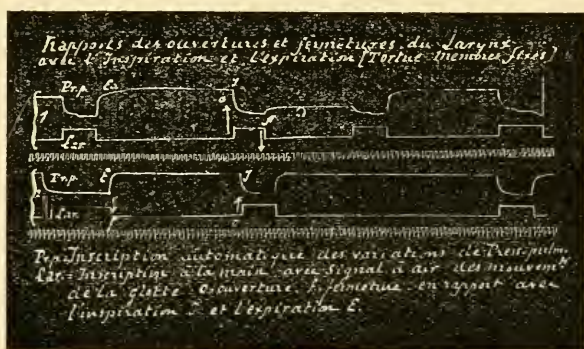 Rapports des ouvertures et fermetures du Larynx
avec l'Inspiration et l'expiration [Tortue membres fixes]
Pr.p. E I
1 o f
Lar
Pr.p. E I
Lar
Pr.p. Inscription automatique des variations de Press. pulm.
Lar. = Inscription à la main avec signal à air des mouvemts
de la glotte O. ouverture. F. fermeture en rapport avec
l'inspiration I. et l'expiration E.